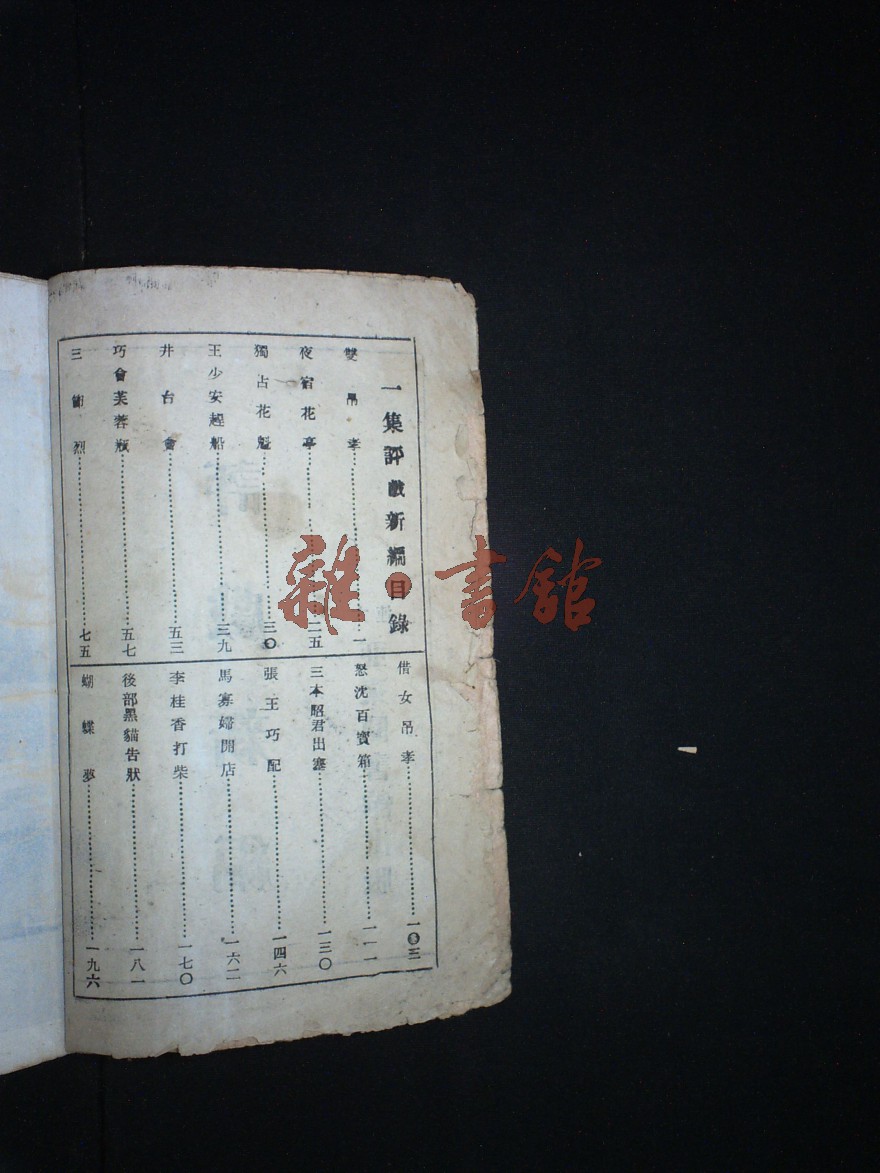 一集評戲新編目錄
雙吊孝⋯⋯一
夜宿花亭⋯⋯二五
獨占花魁⋯⋯三〇
王少安趕船⋯⋯三九
井台會⋯⋯五三
巧會芙蓉瓶⋯⋯五七
三節烈⋯⋯七五
借女吊孝⋯⋯一〇三
怒沈百寶箱⋯⋯一一一
三本昭君出塞⋯⋯一三〇
張王巧配⋯⋯一四六
馬寡婦開店⋯⋯一六二
李桂香打柴⋯⋯一七〇
後部黑貓告狀⋯⋯一八一
蝴蝶夢⋯⋯一九六
雜·書館